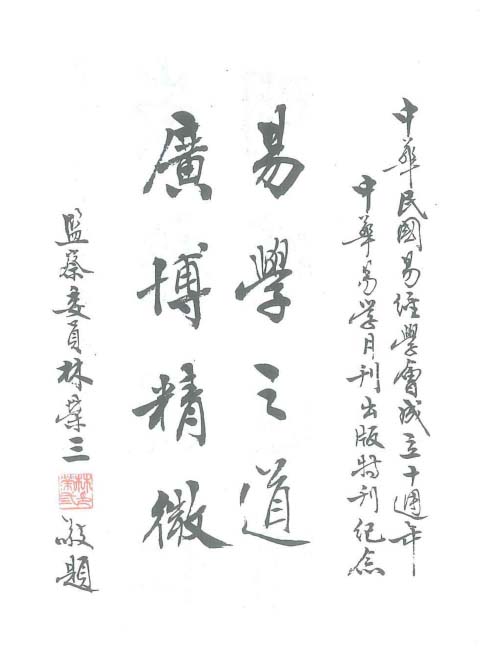 中華民國易經學會成立十週年
中華易學月刊出版特刊紀念
易學之道
廣博精微
監察委員林榮三
敬題